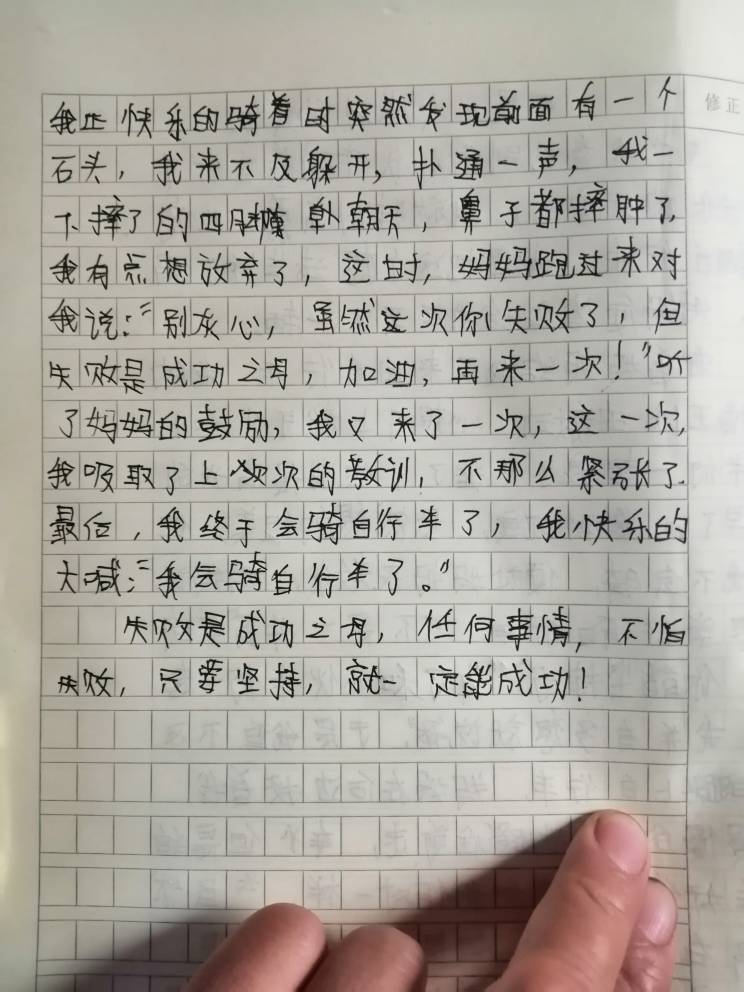 修正
我正快乐的骑着时突然发现前面有一个
石头，我来不及躲开，扑通一声，我一
下摔了的四脚朝天，鼻子都摔肿了，
我有点想放弃了，这时，妈妈跑过来对
我说：“别灰心，虽然这次你失败了，但
失败是成功之母，加油，再来一次！”听
了妈妈的鼓励，我又来了一次，这一次，
我吸取了上次的教训，不那么紧张了。
最后，我终于会骑自行车了，我快乐的
大喊：“我会骑自行车了。”
失败是成功之母，任何事情，不怕
失败，只要坚持，就一定能成功！